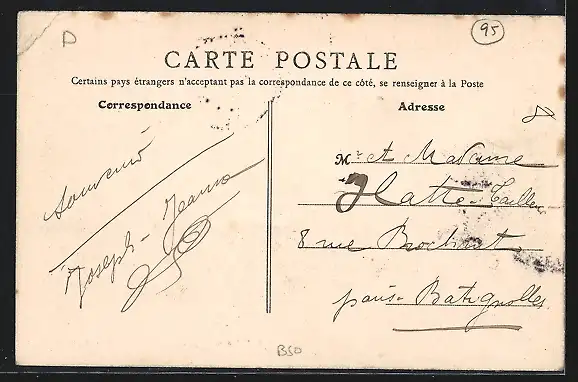 D
95
CARTE POSTALE
Certains pays étrangers n'acceptant pas la correspondance de ce côté, se renseigner à la Poste
Correspondance
Adresse
Souvenir
Joseph - Jeanne
Mr et Madame
Hatte - Tailleur
8 rue Brochant
paris - Batignolles
B50